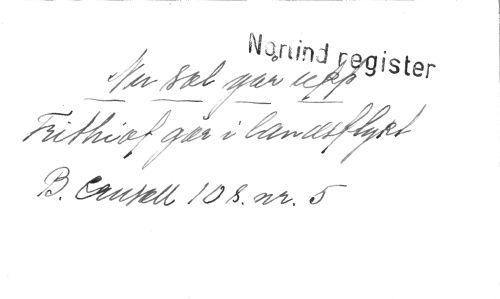 Norlind register
Nu sol går upp
Frithiof går i landsflykt
B. Crusell 10 s. nr. 5